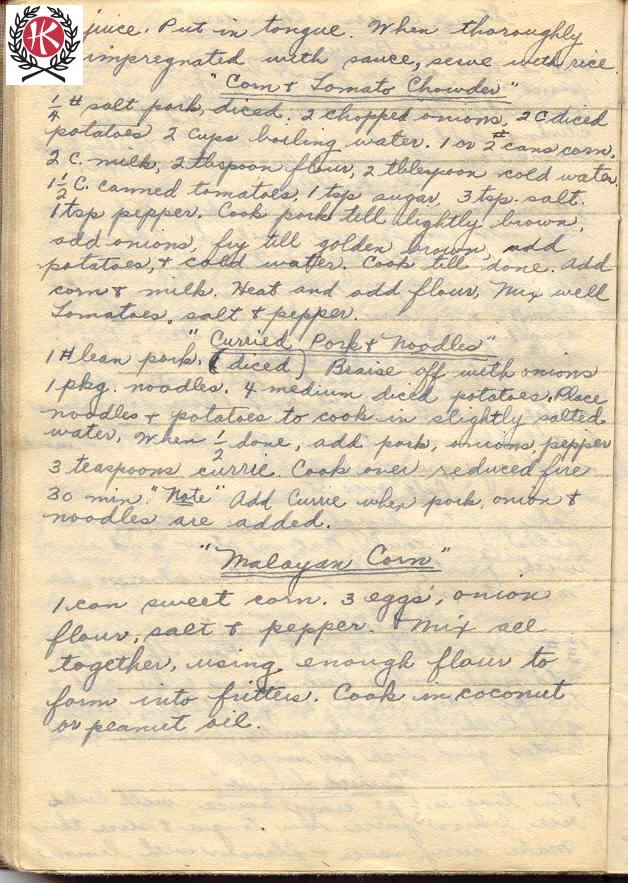 HK
juice. Put in tongue. When thoroughly
impregnated with sauce, serve with rice.
"Corn & Tomato Chowder"
1/4 # salt pork, diced. 2 chopped onions, 2 C diced
potatoes 2 cups boiling water. 1 or 2 # cans corn,
2 c. milk, 2 tblspoon flour, 2 tblspoon cold water.
1 1/2 C. canned tomatoes, 1 tsp sugar, 3 tsp. salt.
1 tsp pepper. Cook pork till slightly brown,
add onions, fry till golden brown, add
potatoes, & cold water. Cook till done. Add
corn & milk. Heat and add flour, Mix well
Tomatoes, salt & pepper.
"Curried Pork & Noodles"
1 # lean pork. (diced) Braise off with onions
1 pkg. noodles. 4 medium diced potatoes. Place
noodles & potatoes to cook in slightly salted
water. When 1/2 done, add pork, onions, pepper
3 teaspoons currie. Cook over reduced fire
30 min. "Note" Add Currie when pork, onion &
noodles are added.
"Malayan Corn"
1 can sweet corn. 3 eggs, onion
flour, salt & pepper. Mix all
together, using enough flour to
form into fritters. Cook in coconut
or peanut oil.